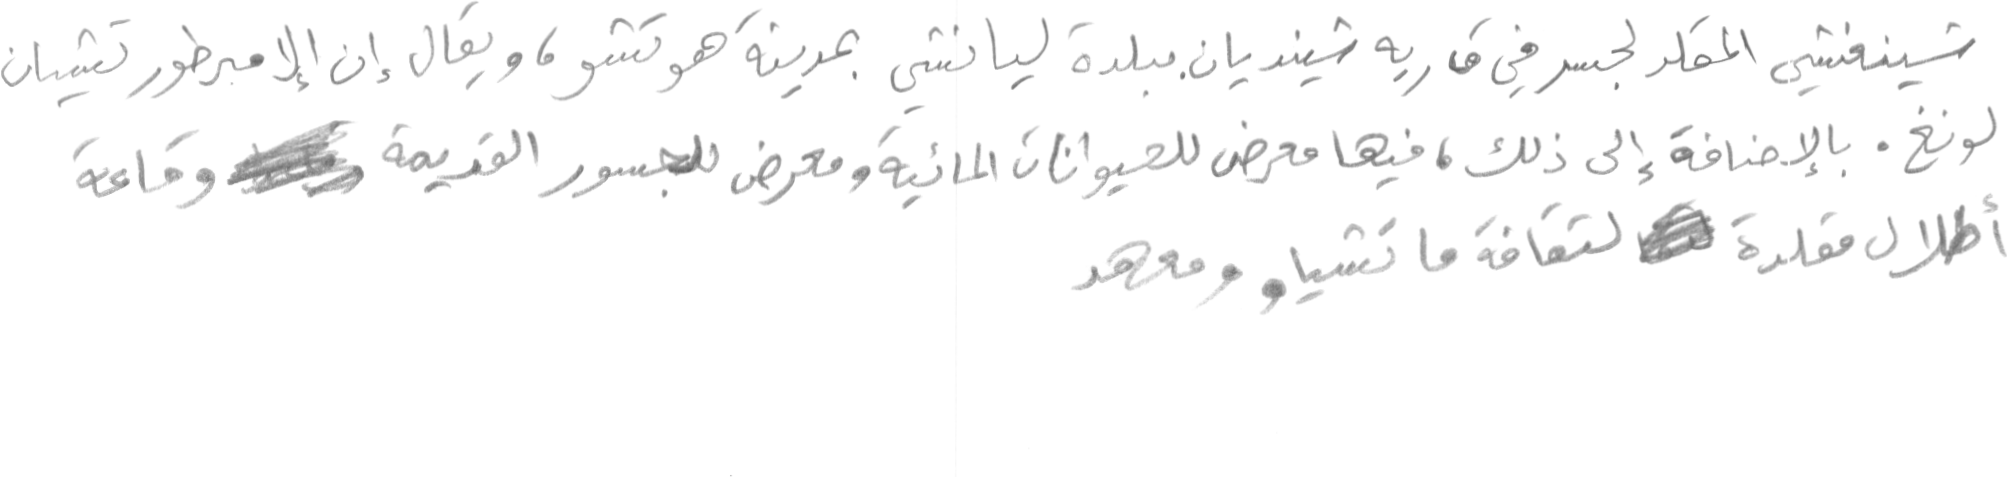 شينغتشي المقلد لجسر في قاريه شينديان ببلدة ليانتشي بمدينة هوتشو، ويقال إن الإمبرطور تشيان
لونغ. بالإضافة إلى ذلك، فيها معرض للحيوانات المائية ومعرض للجسور القديمة وقاعة
أطلال مقلدة لثقافة ماتشياو ومعهد